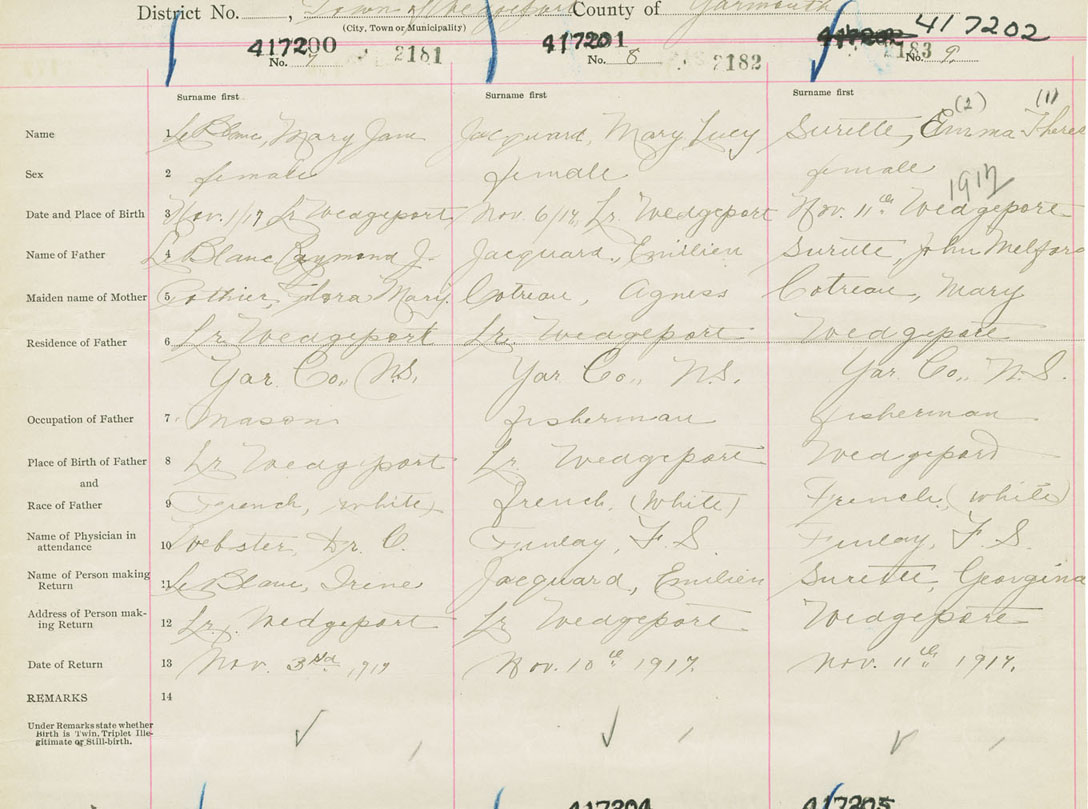 District No. , Town of Wedgeport County of Yarmouth
(City, Town or Municipality)
417200 417201 417202
No. 7 2181 No. 8 2182 2183 No. 9
Surname first Surname first Surname first
(2) (1)
Name 1 LeBlanc, Mary Jane Jacquard, Mary Lucy Surette, Emma Theres
Sex 2 female female female
1917
Date and Place of Birth 3 Nov. 1/17 Lr Wedgeport Nov. 6/17, Lr. Wedgeport Nov. 11th Wedgeport
Name of Father 4 LeBlanc Raymond J. Jacquard, Emilien Surette, John Melford
Maiden name of Mother 5 Pothier, Flora Mary. Cotreau, Agness Cotreau, Mary
Residence of Father 6 Lr. Wedgeport Lr. Wedgeport Wedgeport
Yar. Co., N.S. Yar. Co., N.S. Yar. Co., N.S.
Occupation of Father 7 Mason fisherman fisherman
Place of Birth of Father 8 Lr Wedgeport Lr. Wedgeport Wedgeport
and
Race of Father 9 French, white) French, (White) French, (white)
Name of Physician in
attendance 10 Webster, Dr. C. Finlay, F. S. Finlay, F. S.
Name of Person making
Return 11 LeBlanc, Irene Jacquard, Emilien Surette, Georgina
Address of Person mak-
ing Return 12 Lr. Wedgeport Lr Wedgeport Wedgeport
Date of Return 13 Nov. 3rd 1917 Nov. 10th 1917. Nov. 11th 1917.
REMARKS 14
Under Remarks state whether
Birth is Twin, Triplet Ille-
gitimate or Still-birth.
417204 417205